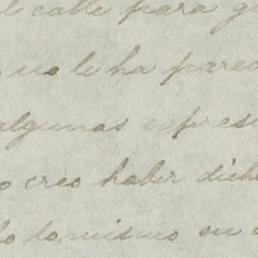 el calle para g
no le ha parec
algunas espresi
o creo haber dich
lo lo mismo en